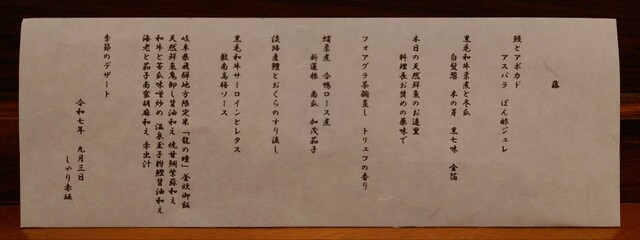 藤
鰻とアボカド
アスパラ　ぽん酢ジュレ
黒毛和牛柔煮と冬瓜
白髪葱　木の芽　黒七味　金箔
本日の天然鮮魚のお造里
料理長お奨めの薬味で
フォアグラ茶碗蒸し　トリュフの香り
蛸柔煮　合鴨ロース煮
新蓮根　南瓜　加茂茄子
淡路産鱧とおくらのすり流し
黒毛和牛サーロインとレタス
紀南高梅ソース
岐阜県飛騨地方限定米「龍の瞳」釜炊御飯
天然鮮魚鬼卸し醤油和え　焼甘鯛紫蘇和え
和牛と苦瓜味噌炒め　温泉玉子粉鰹醤油和え
海老と茄子南蛮胡麻和え　赤出汁
季節のデザート
令和七年　九月三日
しゃり赤坂